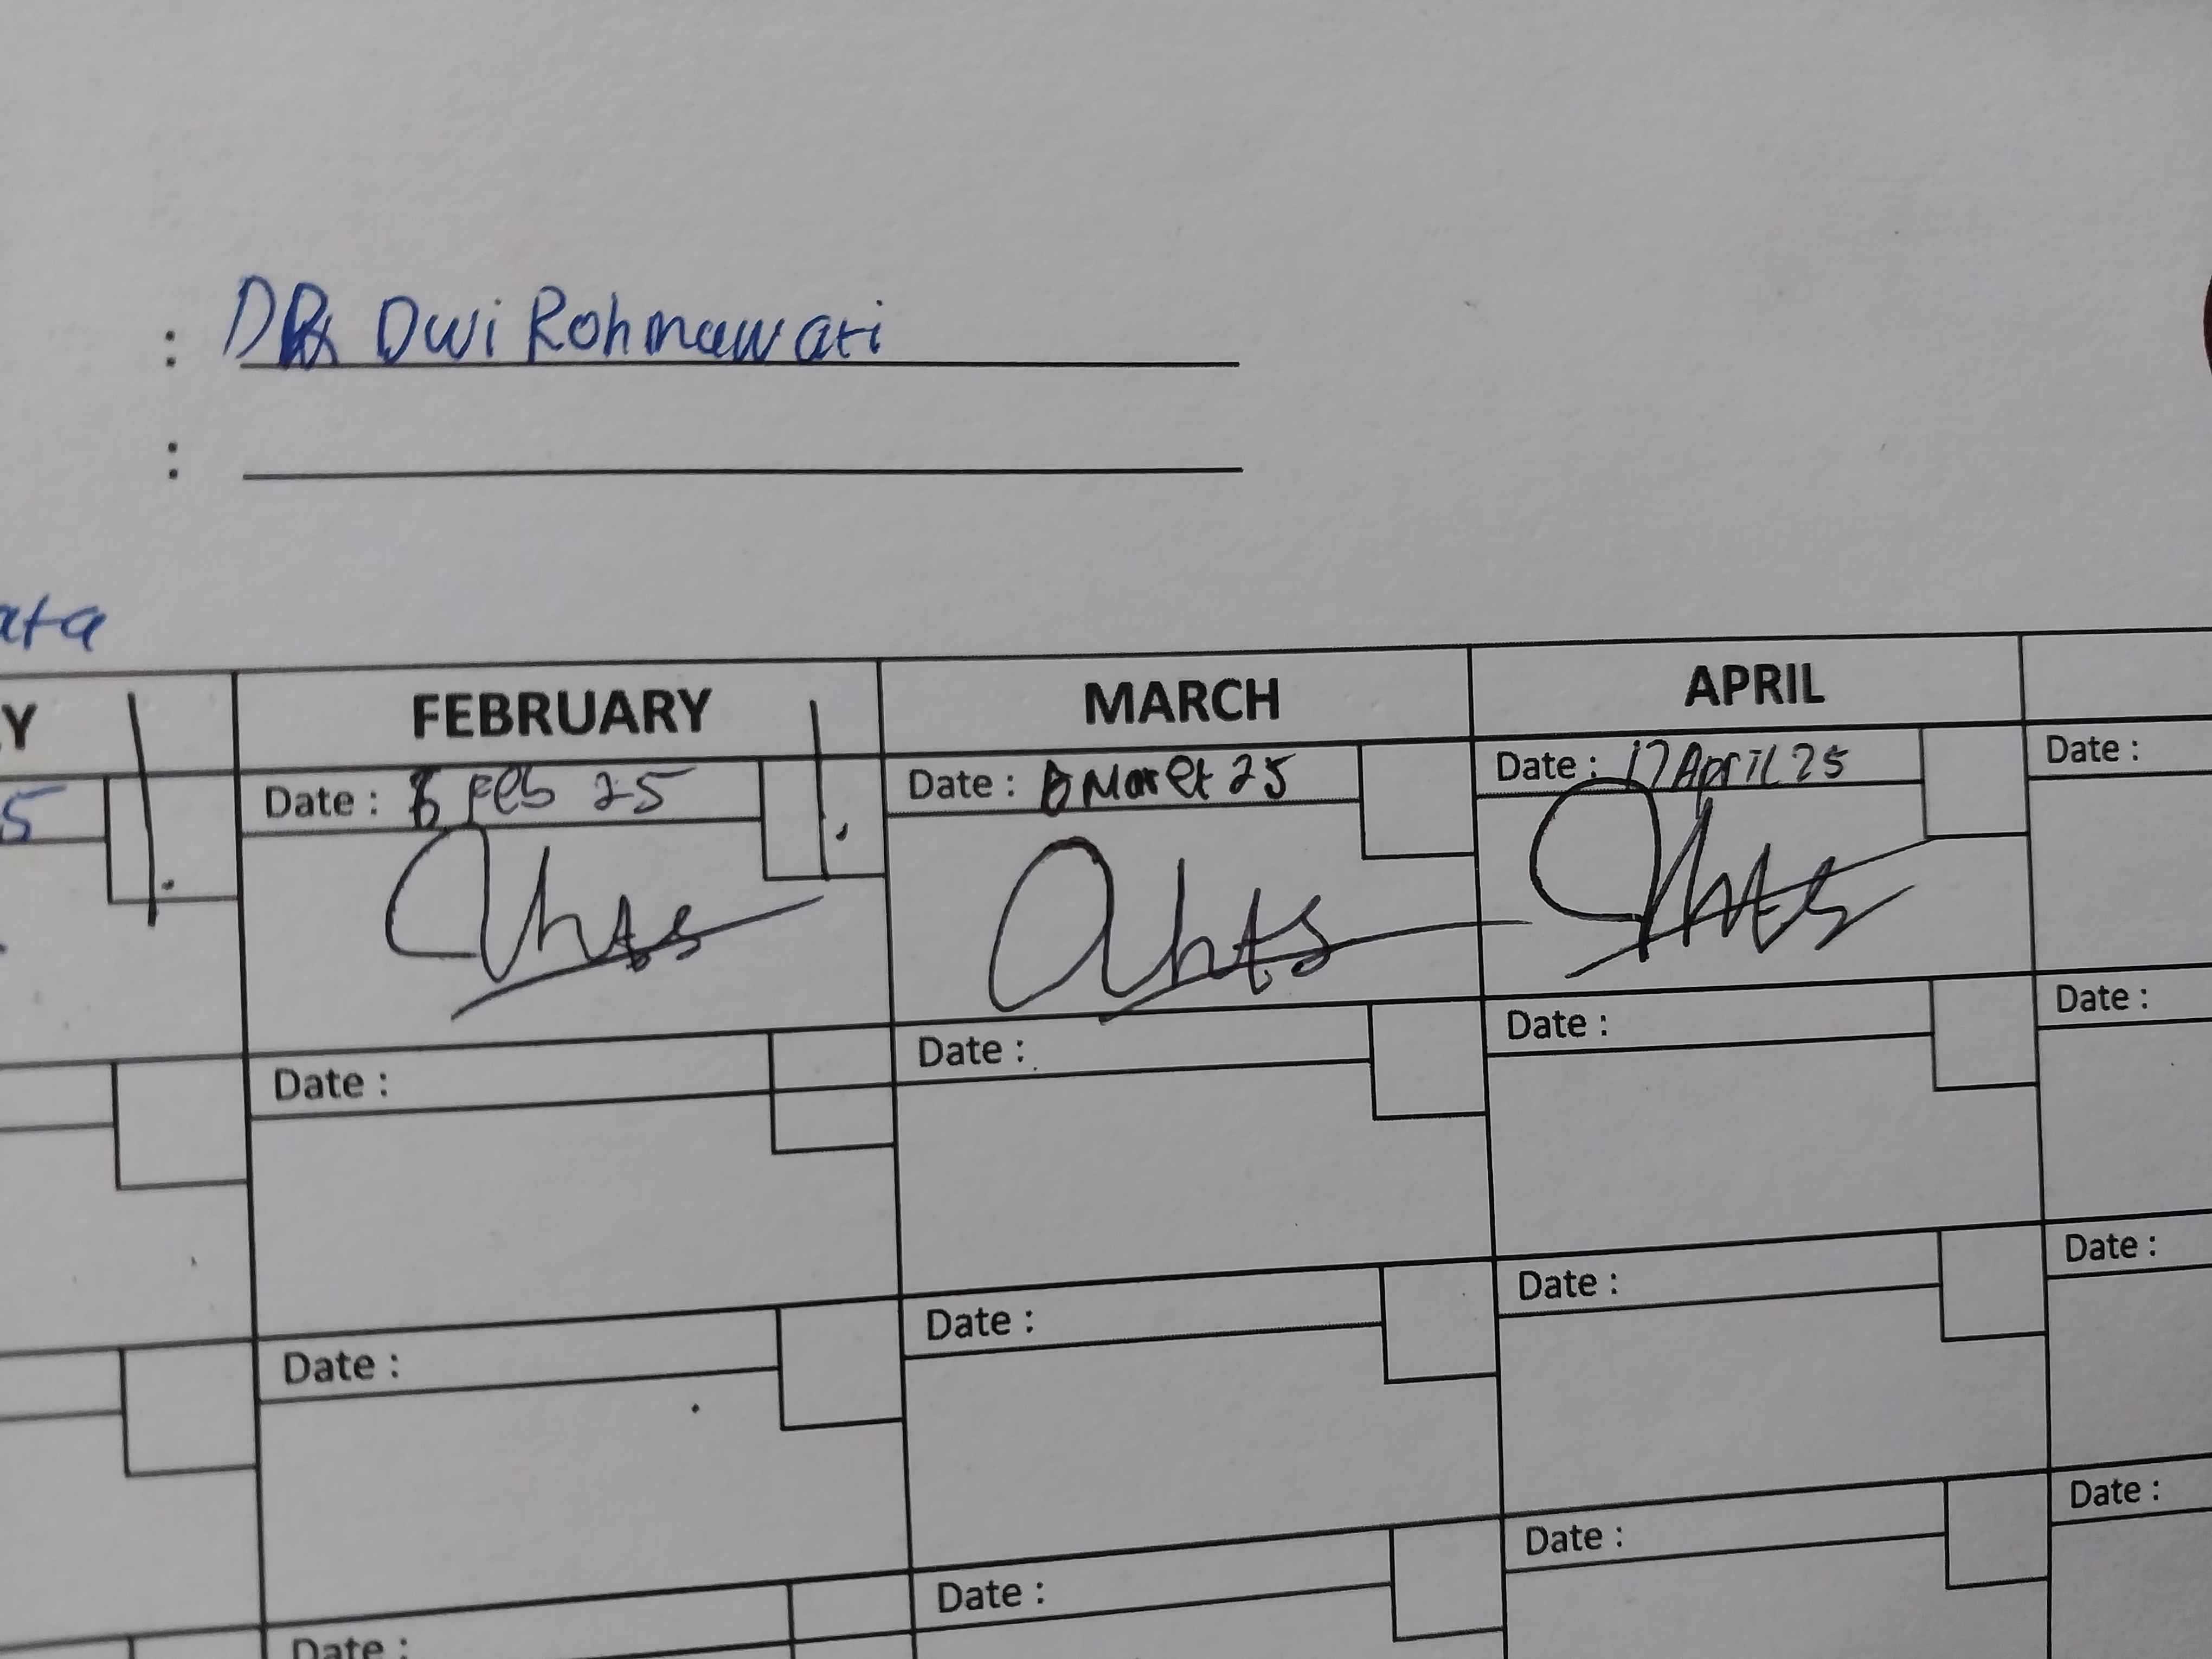 : Dwi Rohmawati
:
ata
Y FEBRUARY MARCH APRIL
5 Date : Feb 25 Date : Maret 25 Date : 17 April 25 Date :
Date : Date : Date : Date :
Date : Date : Date : Date :
Date : Date : Date : Date :